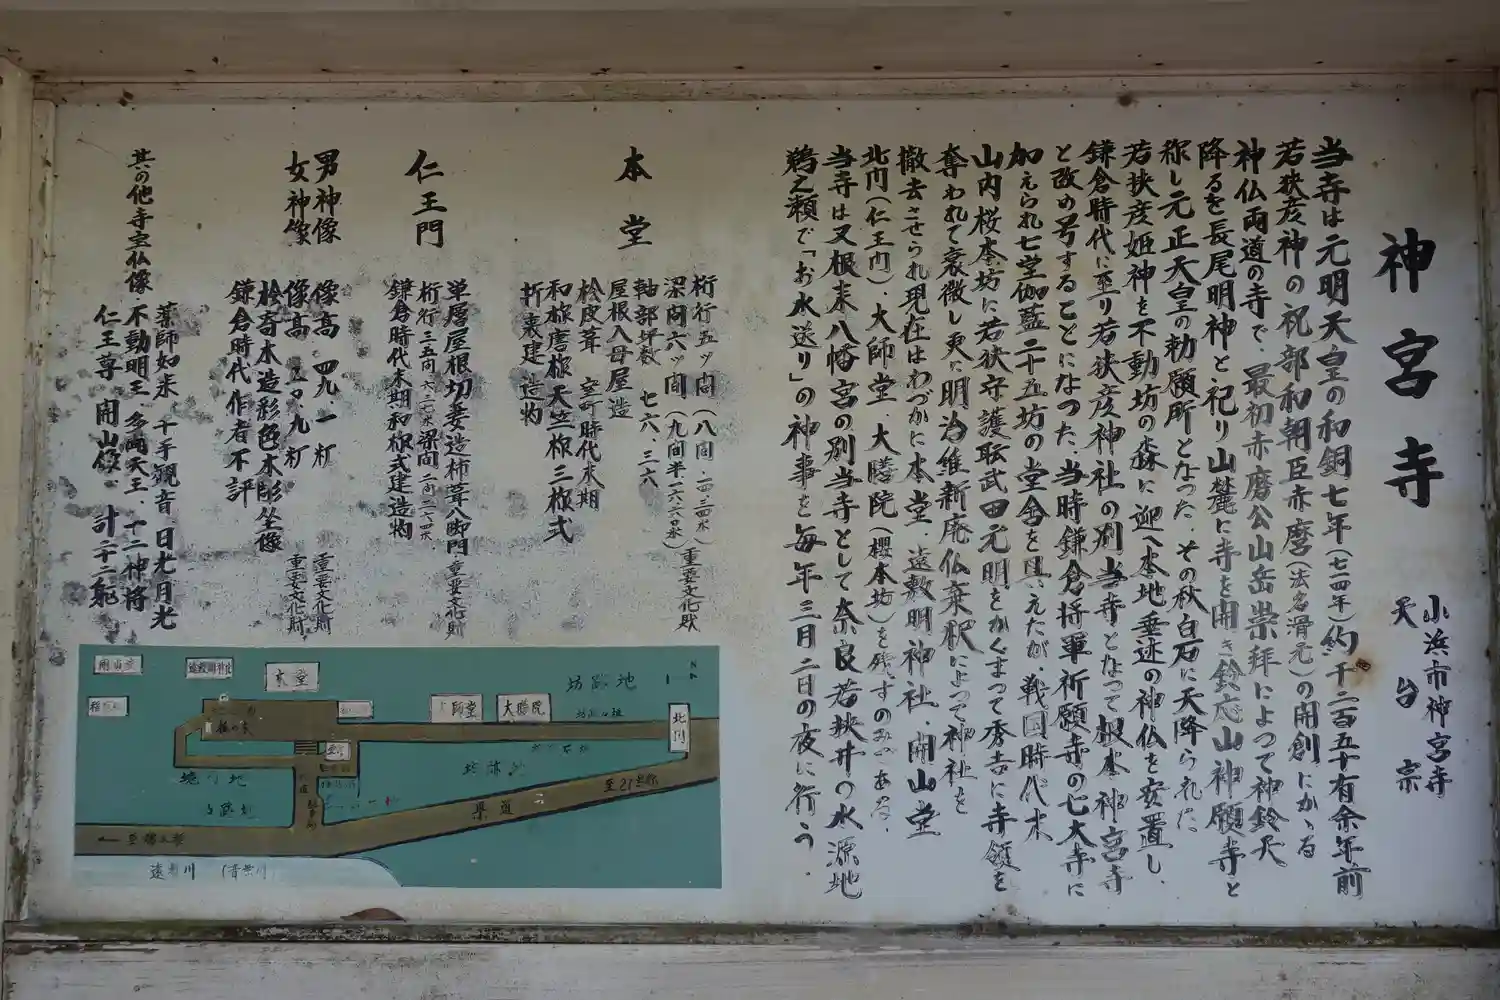 神宮寺
小浜市神宮寺
天台宗
当寺は元明天皇の和銅七年(七一四年)約一千二百五十有余年前
若狭彦神の祝部和朝臣赤麿(法名滑元)の開創にかゝる
神仏両道の寺で、最初赤麿公山岳崇拝によって神鈴天
降るを長尾明神と祀り山麓に寺を開き鈴応山神願寺と
称し元正天皇の勅願所となった、その秋白石に天降られた
若狭彦姫神を不動坊の森に迎へ本地垂迹の神仏を安置し、
鎌倉時代に至り若狭彦神社の別当寺となって根本神宮寺
と改め号することになった、当時鎌倉将軍祈願寺の七大寺に
加えられ七堂伽藍二十五坊の堂舎を具えたが、戦国時代末
山内桜本坊に若狭守護職武田元明をかくまって秀吉に寺領を
奪われて衰微し更に明治維新廃仏棄釈によって神社を
撤去させられ現在はわづかに本堂、遠敷明神社、開山堂
北門(仁王門)、大師堂、大膳院(桜本坊)を残すのみである、
当寺は又根来八幡宮の別当寺として奈良若狭井の水源地
鵜之瀬で「お水送り」の神事を毎年三月二日の夜に行う.
本堂
桁行五ッ間(八間・一四、三四米)
梁間六ッ間(九間半一六、六〇米)重要文化財
軸部坪数 七六、三六
屋根入母屋造
桧皮葺 室町時代末期
和様唐様天竺様三様式
折衷建造物
仁王門
単層屋根切妻造柿葺八脚門 重要文化財
鎌倉時代末期和様式建造物
男神像 像高、四九、一糎 重要文化財
女神像 像高 五〇、九糎 重要文化財
桧寄木造彩色木彫坐像
鎌倉時代作者不詳
其の他寺宝仏像
薬師如来 千手観音 日光月光
不動明王、多聞天王、十二神将
仁王尊 開山像、 計二十二躯
開山堂
遠敷明神社
本堂
坊跡地
大師堂
大膳院
北門
椎の木
坊跡地
境内地
県道
至27号線
遠敷川 (音無川)
N